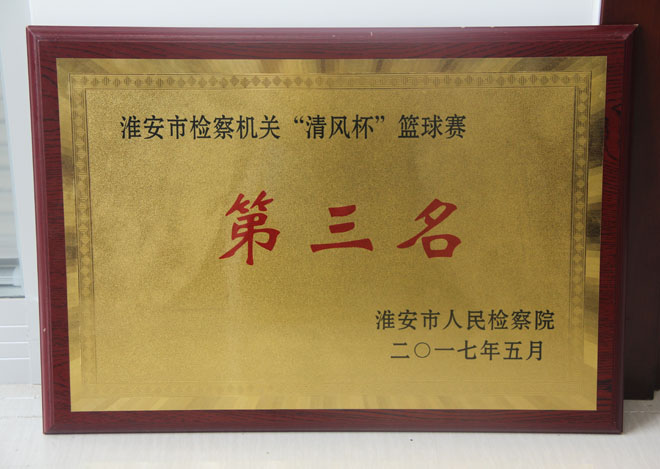 淮安市检察机关“清风杯”篮球赛
第三名
淮安市人民检察院
二〇一七年五月